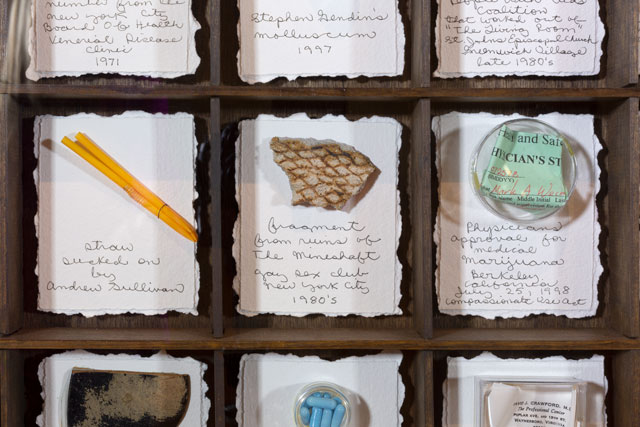 number from the
new york City
Board of Health
Venereal Disease
clinic
1971
Stephen Gendin's
molluscum
1997
Coalition
that worked out of
"The Living Room"
St Johns Episcopal Church
Greenwich Village
late 1980's
straw
sucked on
by
Andrew Sullivan
fragment
from ruins of
the Mineshaft
gay sex club
New York City
1980's
and Safe
CIAN'S ST
Middle Initial
Physician's
approval for
medical
Marijuana
Berkeley
California
July 25, 1998
Compassionate Use Act
CRAWFORD, M.D.
The Professional Center
POPLAR AVE.
WAYNESBORO, VIRGINIA